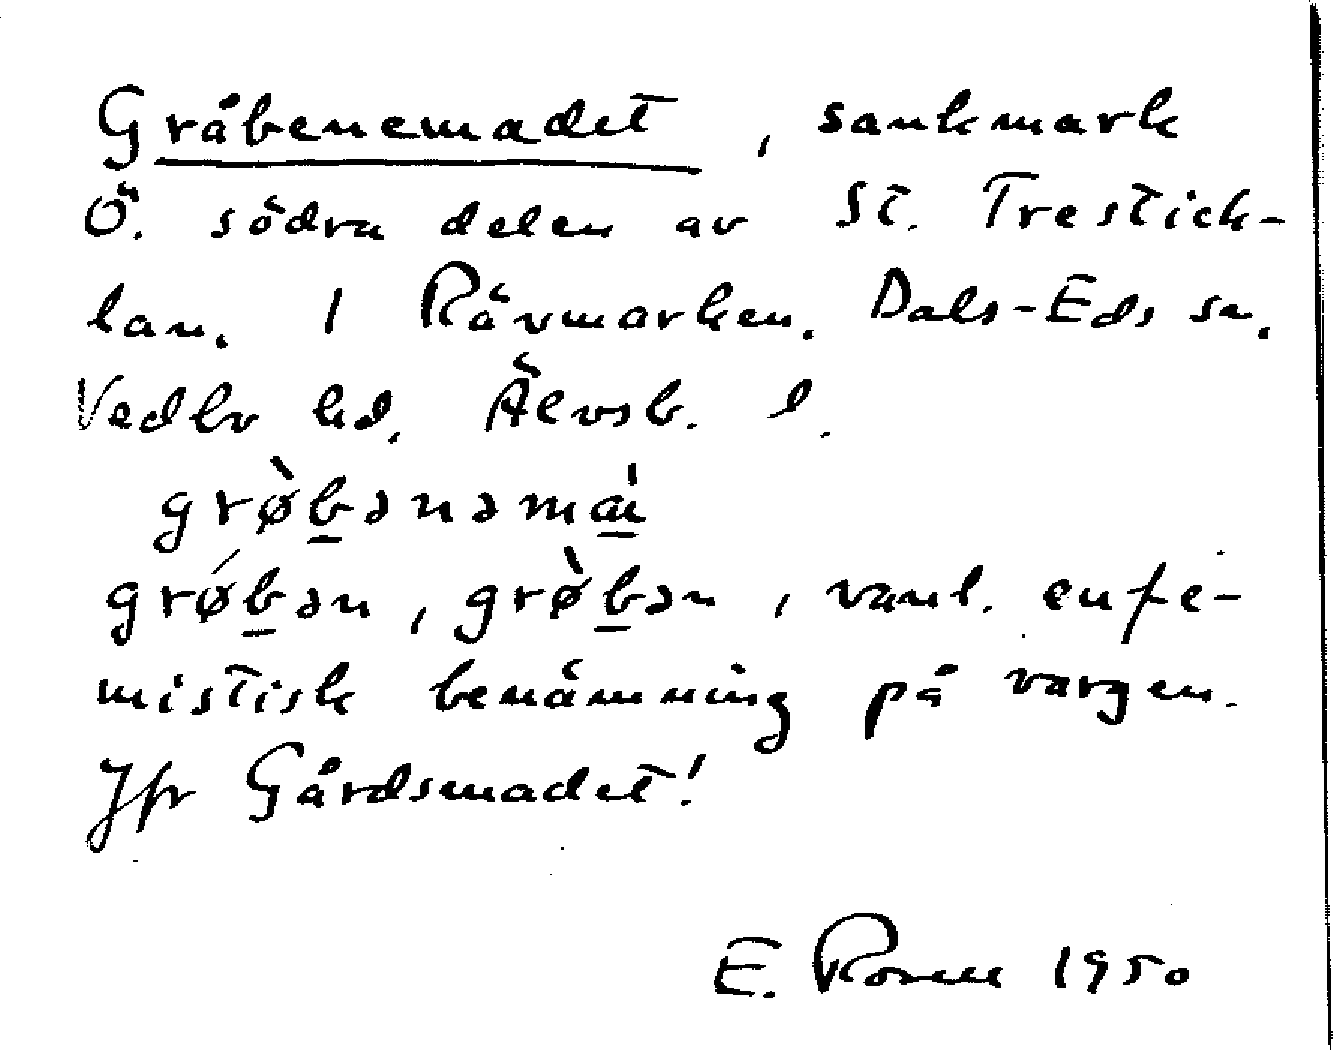 Gråbenemadet, sankmark
Ö. södra delen av St. Trestick-
lan. I Rävmarken. Dals-Eds sn.
Vedbo hd. Älvsb. l.
grø̀bənəmai
grǿbən, grø̀bən, vanl. eufe-
mistisk benämning på vargen.
Jfr Gårdsmadet!
E. 1950